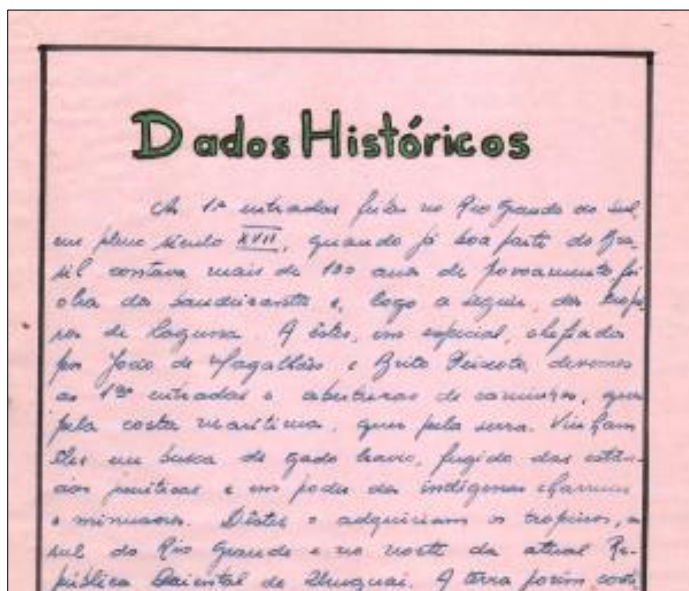 Dados Históricos
As 1ªs entradas feitas no Rio Grande do Sul,
em pleno século XVII, quando já boa parte do Bra-
sil contava mais de 100 anos de povoamento foi
obra dos bandeirantes e, logo a seguir, dos tropei-
ros de Laguna. A êstes, em especial, chefiados
por João de Magalhães e Brito Peixoto, devemos
as 1ªs entradas e aberturas de caminhos, quer
pela costa marítima, quer pela serra. Vinham
êles em busca de gado bravio, fugido das estân-
cias jesuíticas e em poder dos indígenas charruas
e minuanos. Dêstes o adquiriam os tropeiros, ao
sul do Rio Grande e no norte da atual Re-
pública Oriental do Uruguai. A terra porém